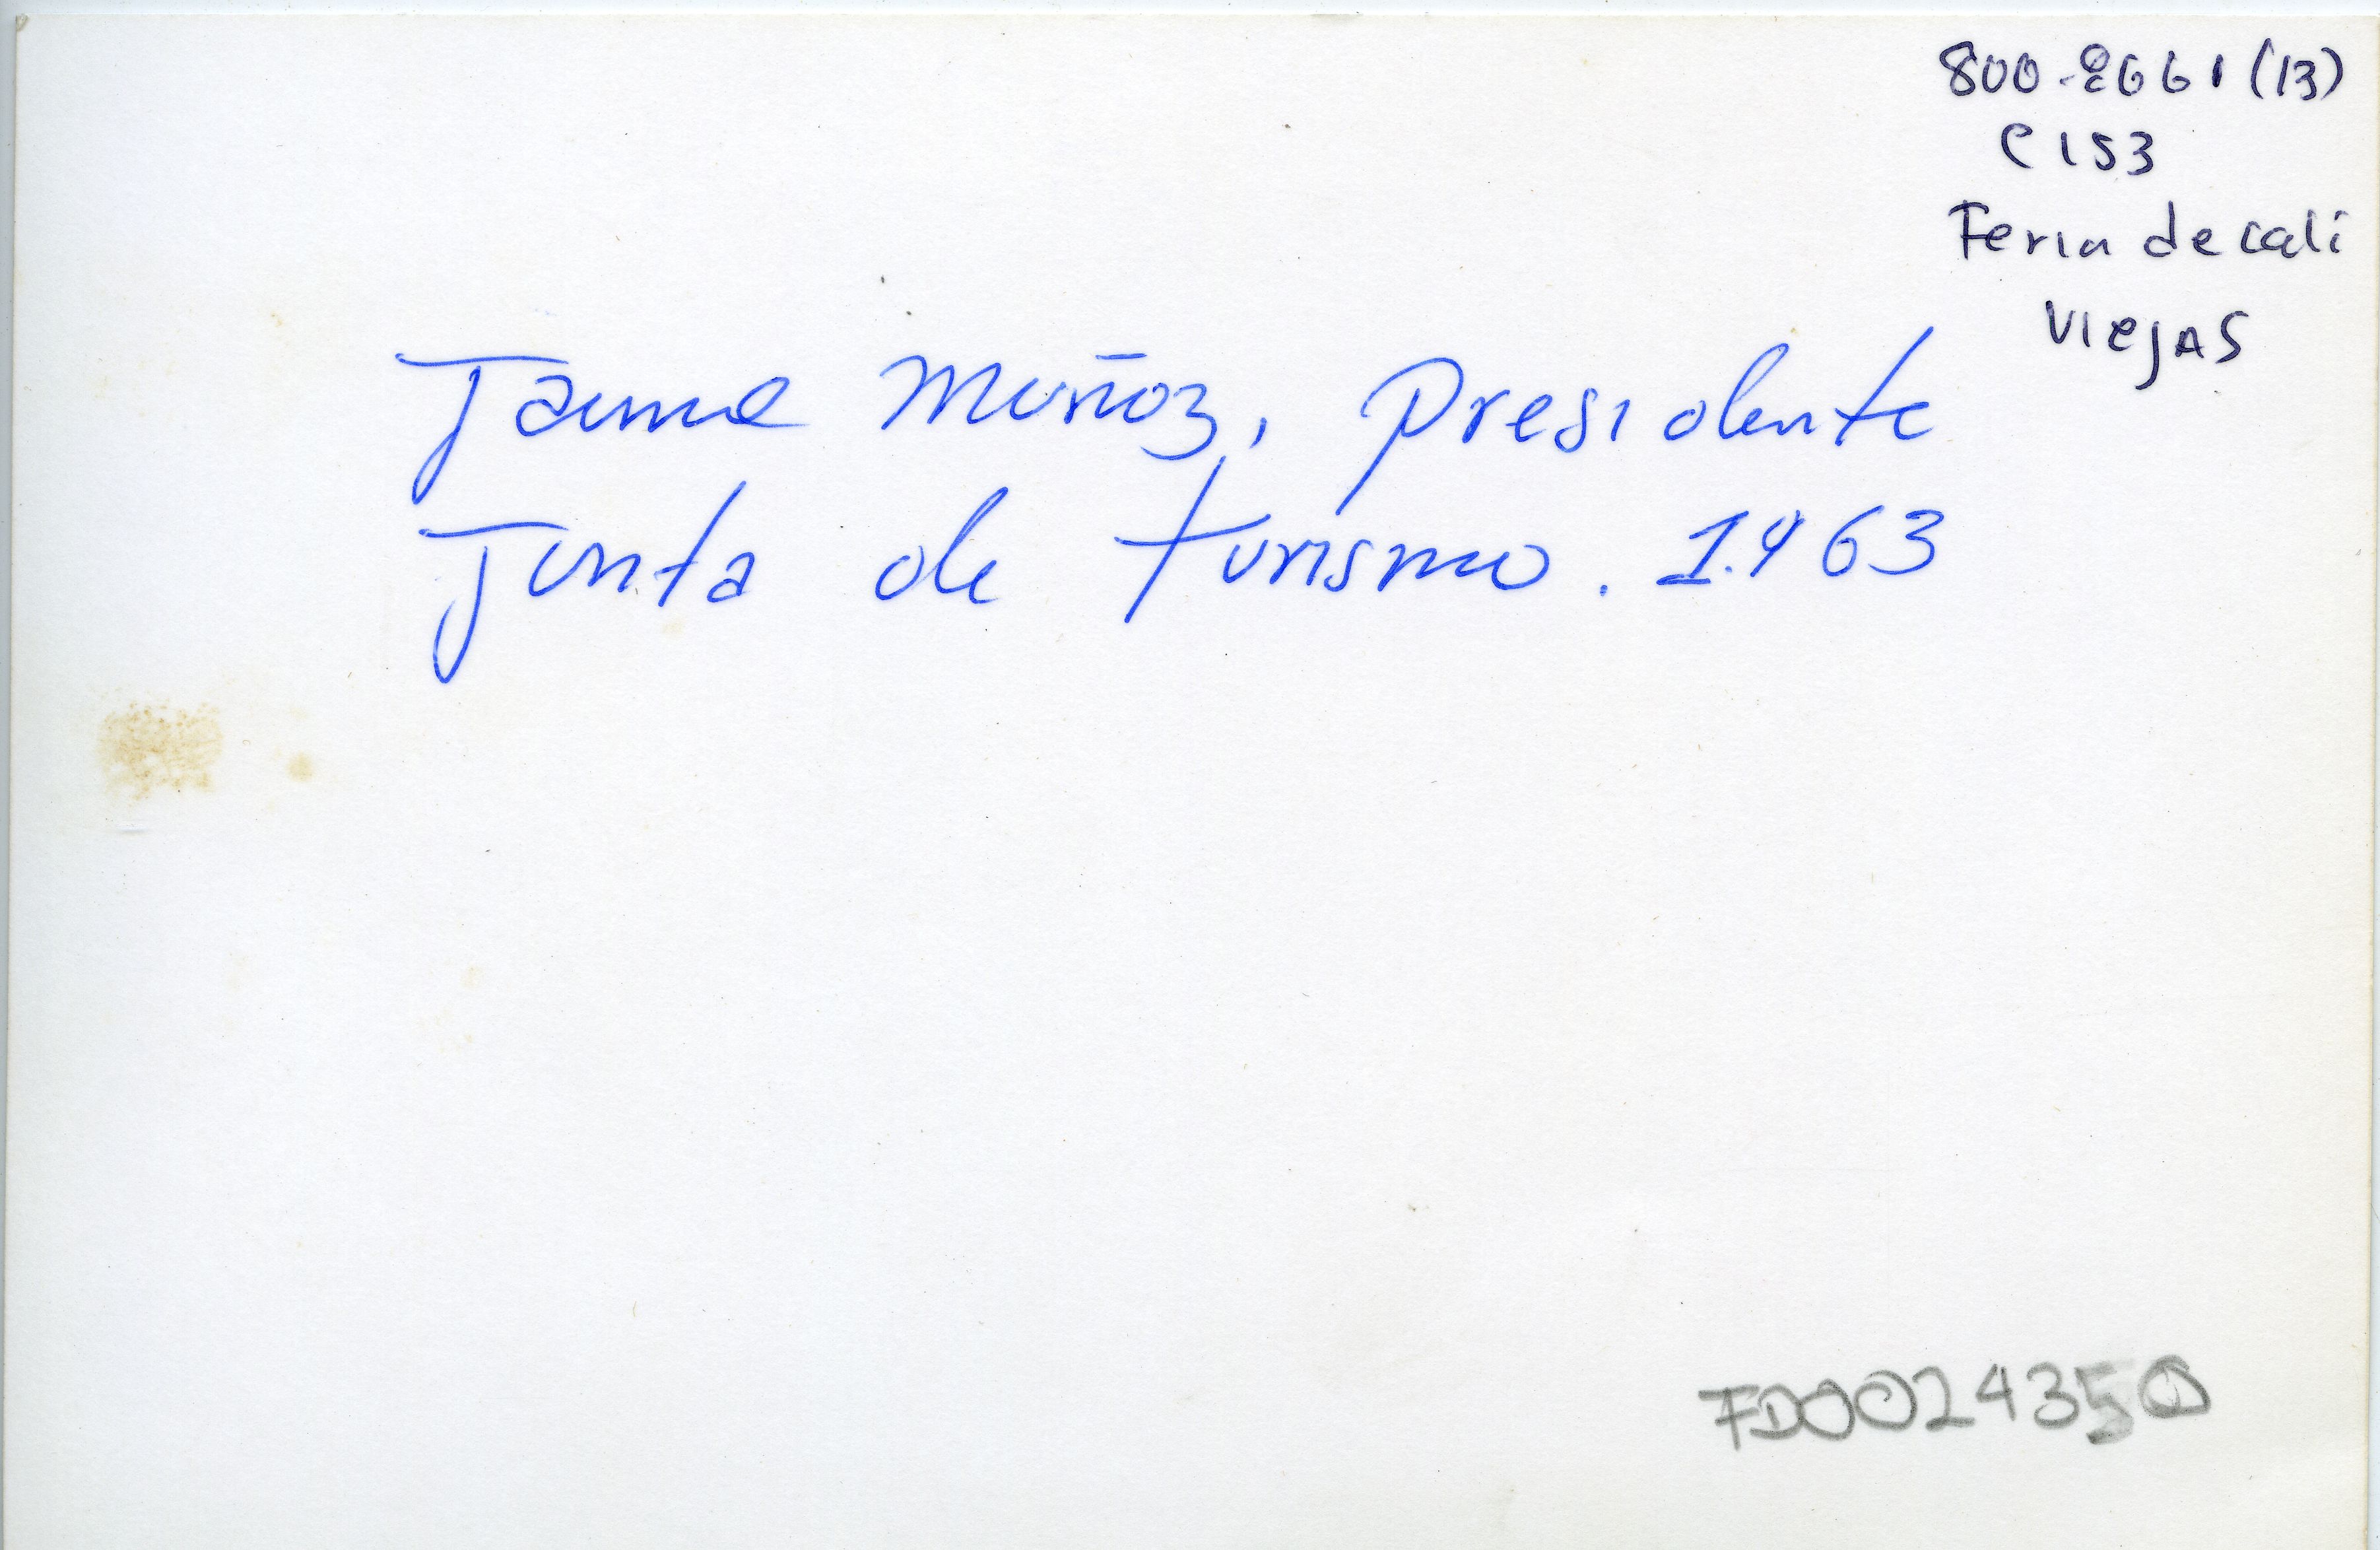 800-2661 (13)
C 153
Feria de cali
Viejas
Jaime Muñoz, Presidente
Junta de turismo. 1.963